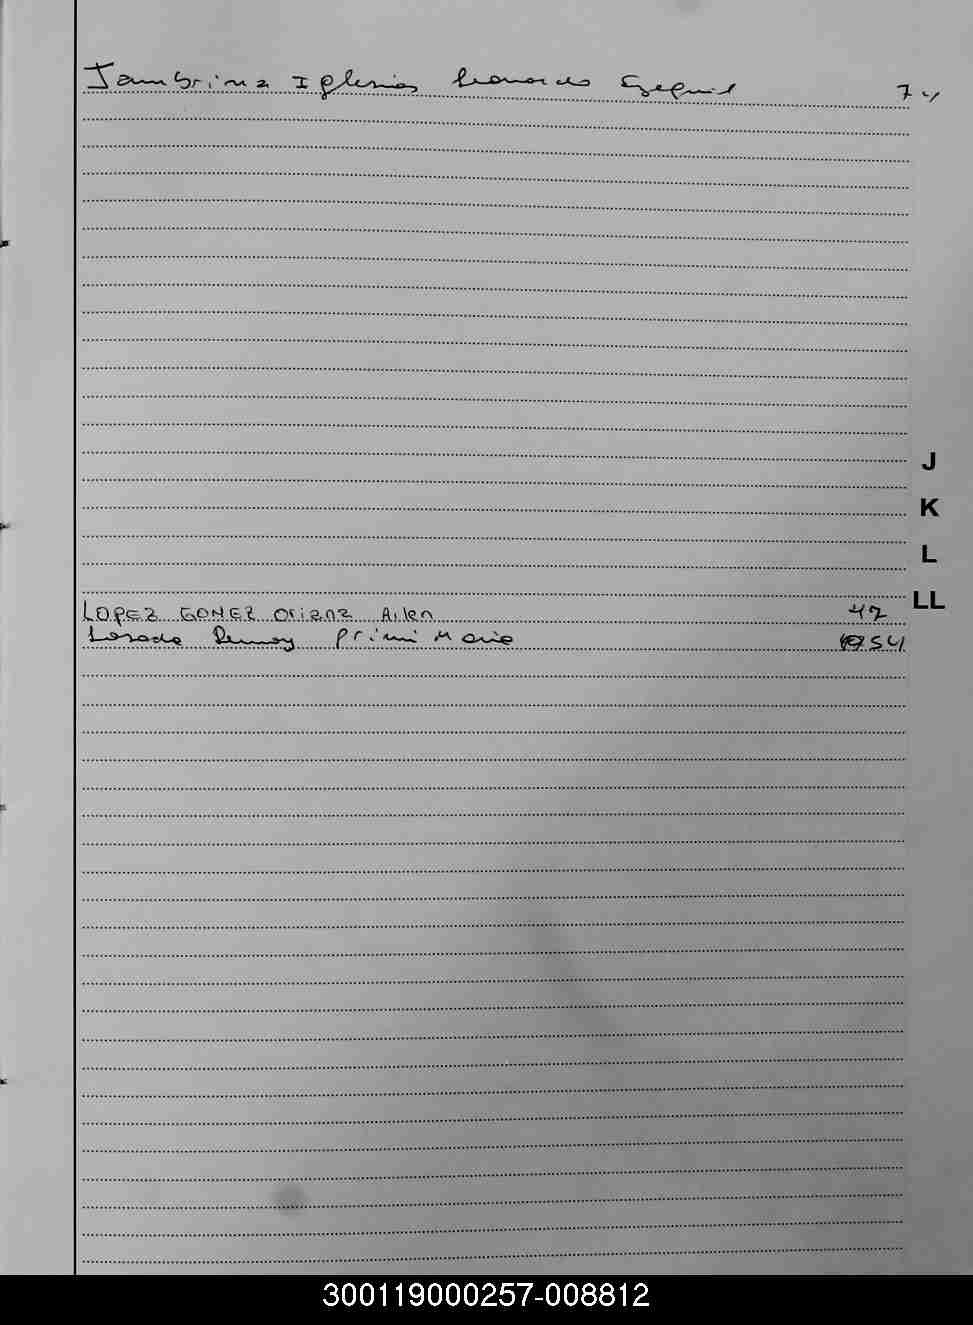 Jambrina Iglesias Leonardo Ezequiel 74
J
K
L
LL
LOPEZ GOMEZ Oriana Ailen 47
Losada primi Maria 54
300119000257-008812